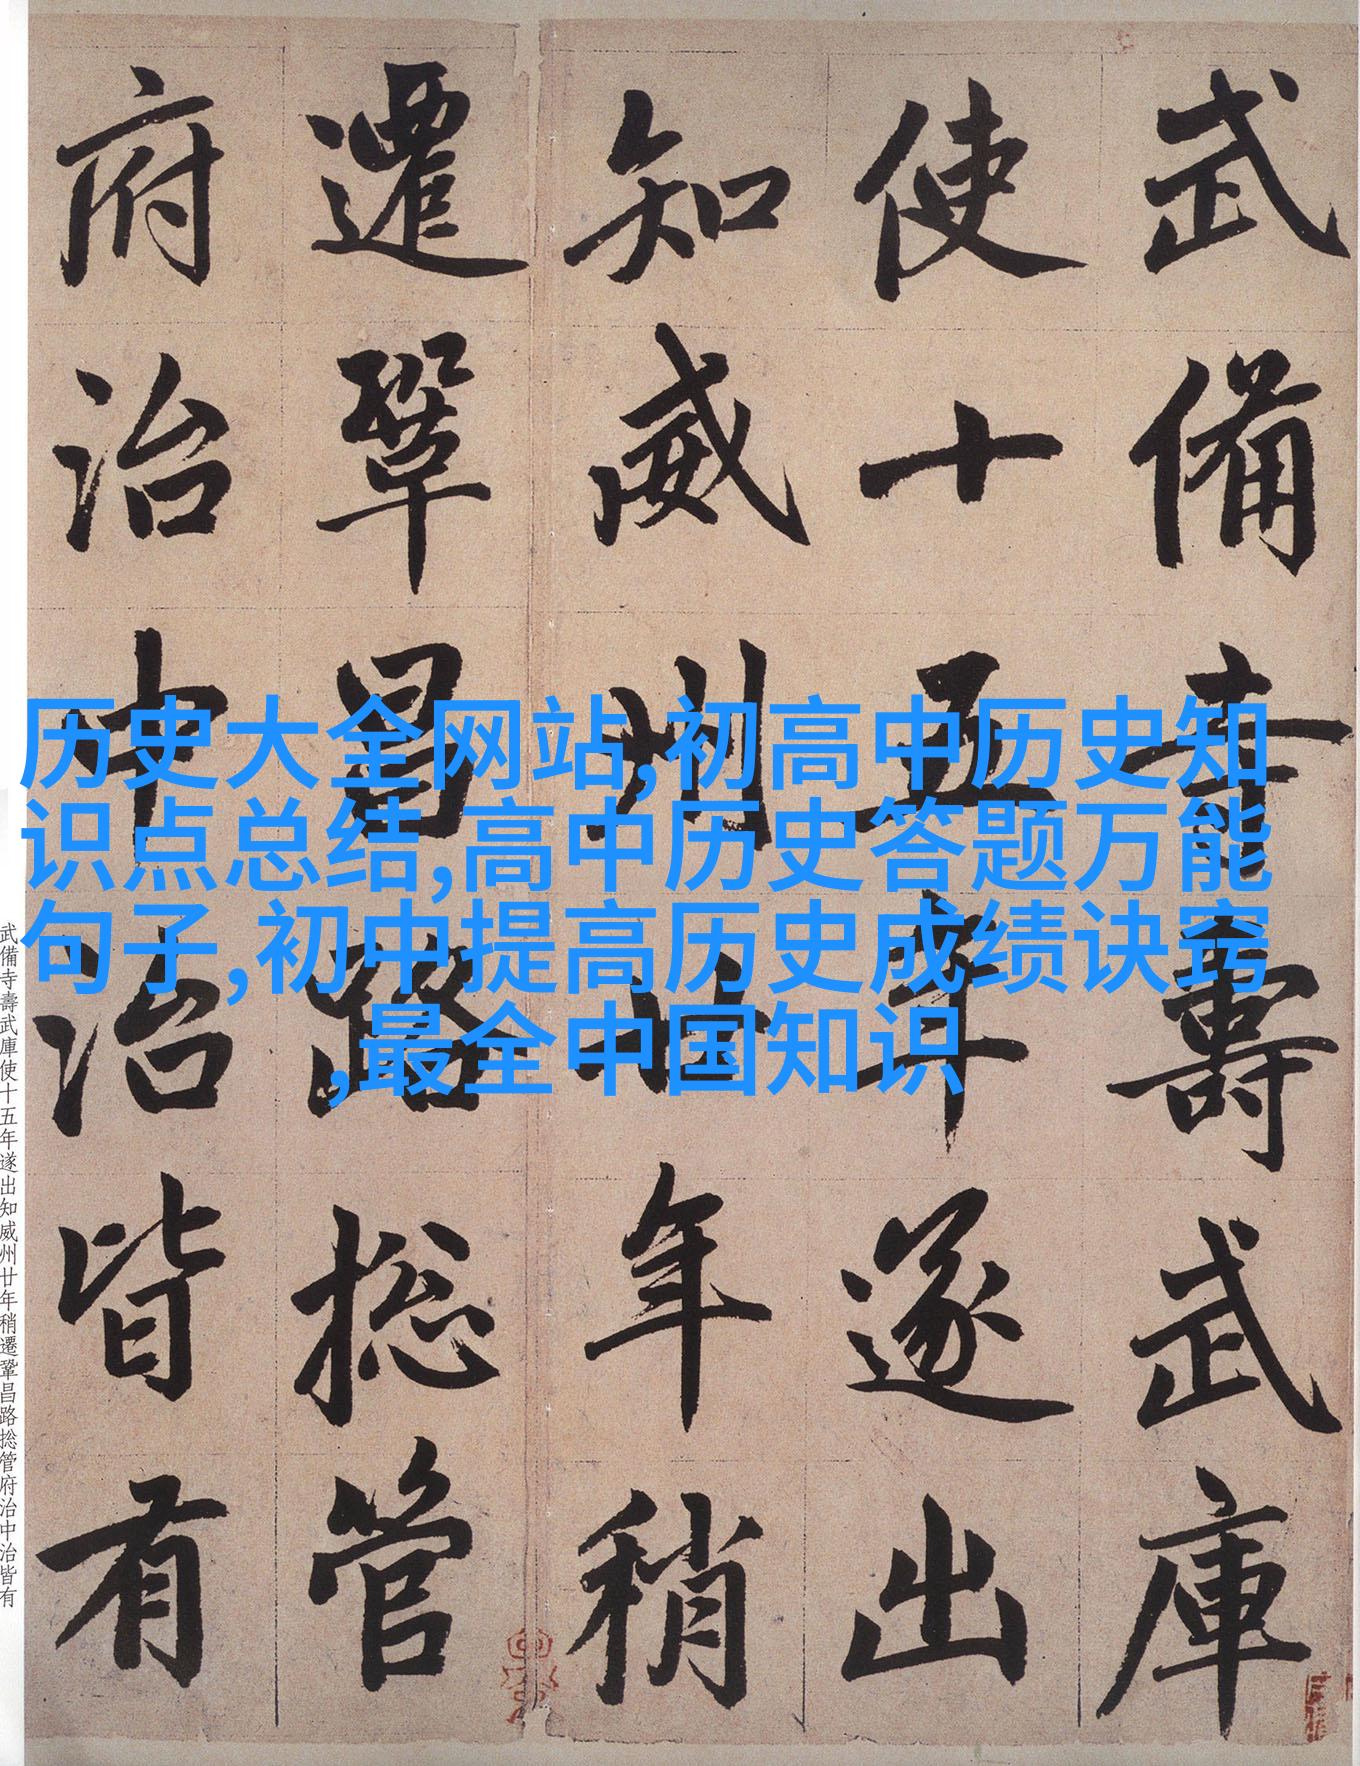 武備寺壽武庫
使十五年遂出
知威州廿年稍
遷鞏昌路捴管
府治中治皆有
武備寺壽武庫使十五年遂出知威州廿年稍遷鞏昌路捴管府治中治皆有
历史大全网站,初高中历史知
识点总结,高中历史答题万能
句子,初中提高历史成绩诀窍
,最全中国知识